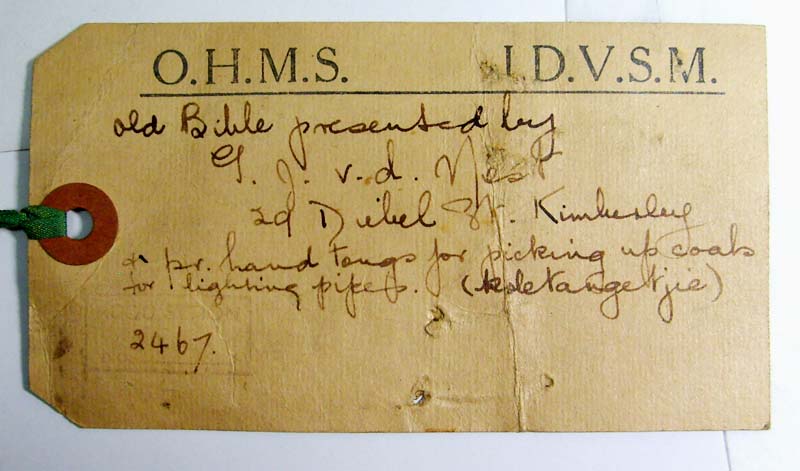 O.H.M.S. I.D.V.S.M.
old Bible presented by
G. J. v.d. Nest
29 Diebel St. Kimberley
& pr. hand tongs for picking up coals
for lighting pipes. (koletangetjie)
2467.